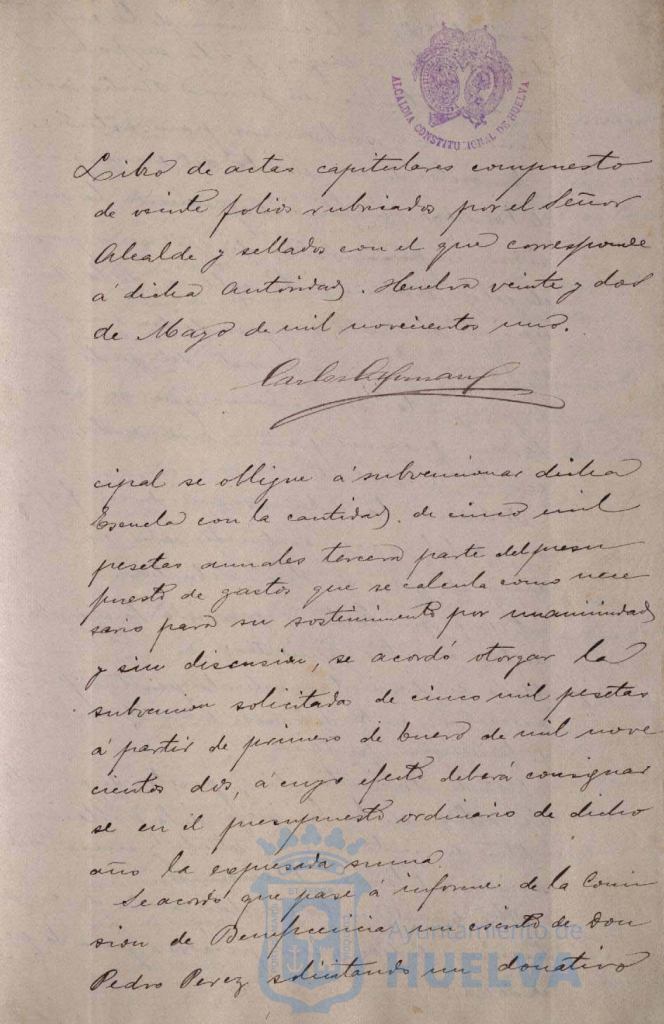 ALCALDIA CONSTITUCIONAL DE HUELVA
Libro de actas capitulares compuesto
de veinte folios rubricados por el Señor
Alcalde y sellados con el que corresponde
á dicha autoridad. Huelva veinte y dos
de Mayo de mil novecientos uno.
cipal se obligue á subvencionar dicha
Escuela con la cantidad de cinco mil
pesetas anuales tercera parte del presu
puesto de gastos que se calcula como nece
sario para su sostenimiento por unanimidad
y sin discusion, se acordó otorgar la
subvencion solicitada de cinco mil pesetas
á partir de primero de Enero de mil nove
cientos dos, á cuyo efecto deberá consignar
se en el presupuesto ordinario de dicho
año la expresada suma.
Se acordó que pase á informe de la Comi
sion de Beneficencia un escrito de Don
Pedro Perez solicitando un donativo
Ayuntamiento de
HUELVA